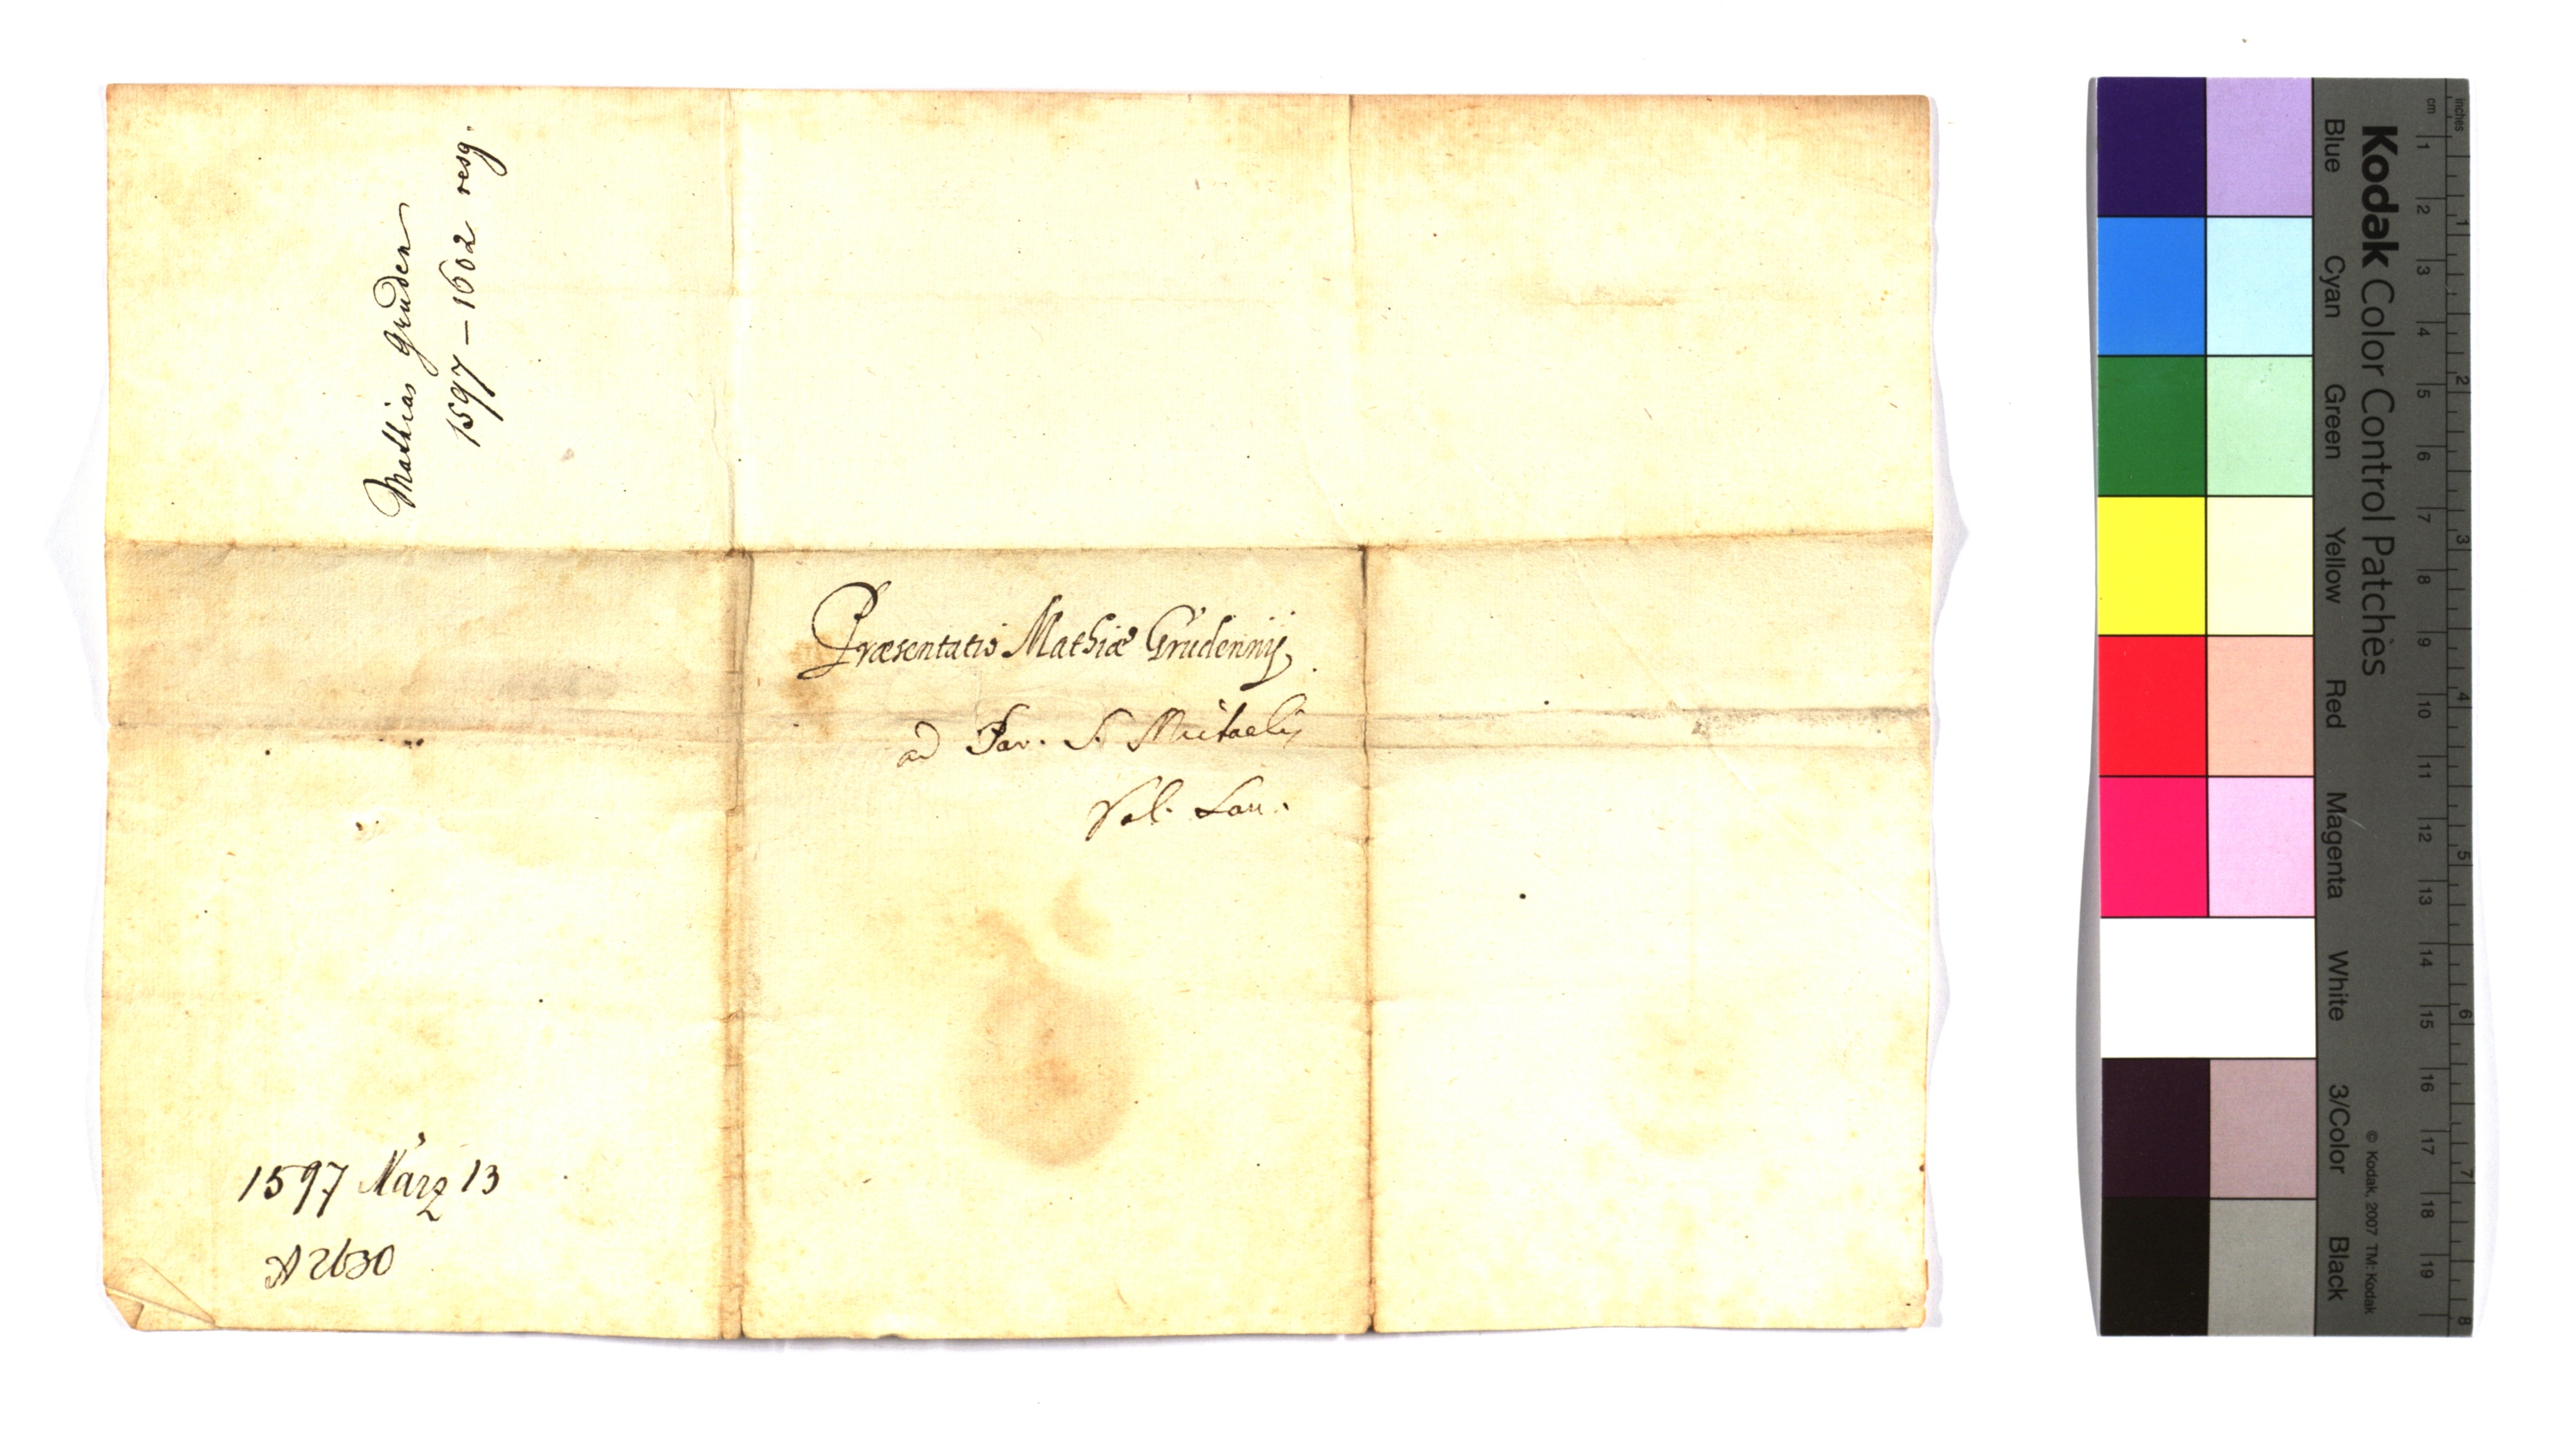 Mathias Gruden
1597 – 1602 resg.
Præsentatio Mathiæ Grudennij
ad Par. S. Michaelis
Val. Lau.
1597 März 13
A 2630
Kodak Color Control Patches
Blue Cyan Green Yellow Red Magenta White 3/Color Black
© Kodak, 2007 TM: Kodak
cm 1 2 3 4 5 6 7 8 9 10 11 12 13 14 15 16 17 18 19
inches 1 2 3 4 5 6 7 8